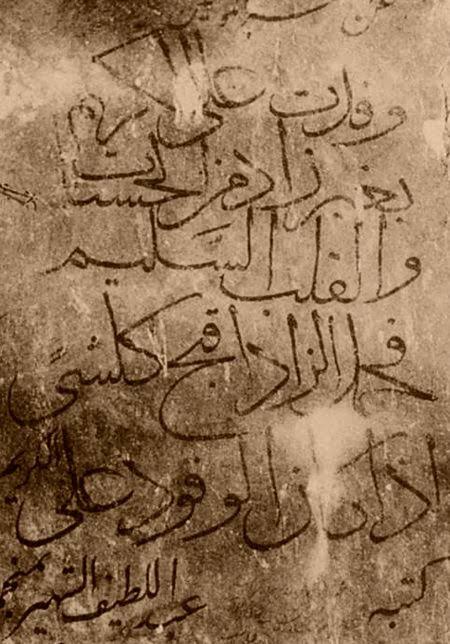 وفدت على الكريم
بغير زاد من الحسنات
والقلب السليم
فحمل الزاد اقبح كل شئ
اذا كان الوفود على الكريم
كتبه عبد اللطيف الشهير بمنجم